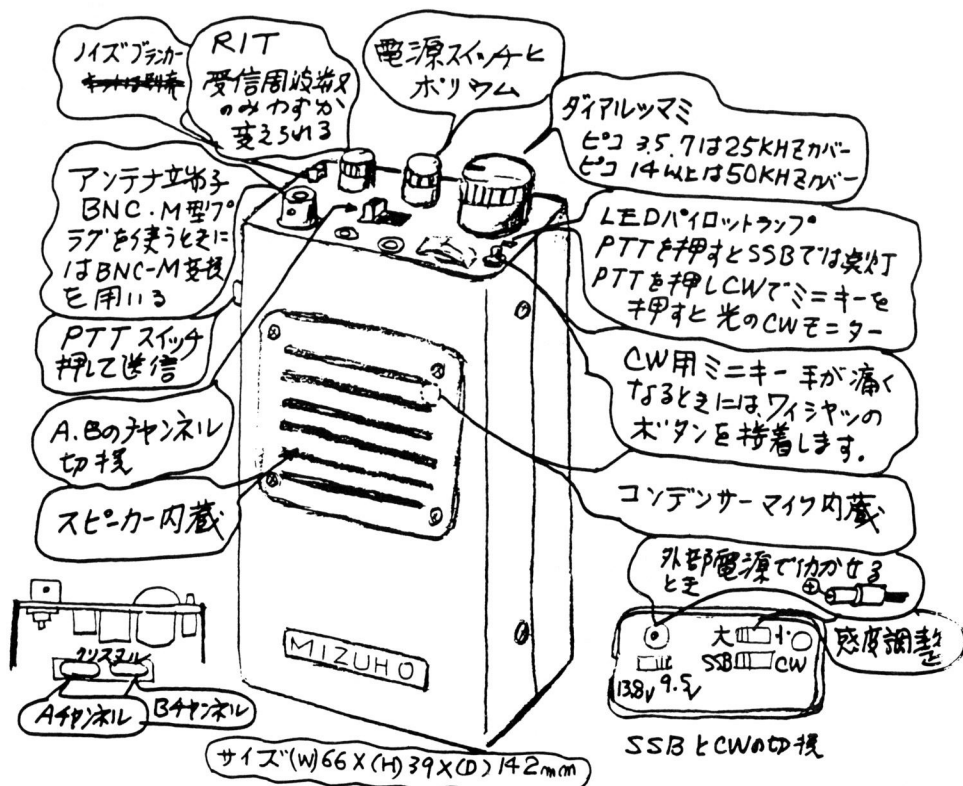 ノイズブランカー
RIT
受信周波数
のみわずか
変えられる
電源スイッチと
ボリウム
ダイアルツマミ
ピコ 3.5.7は25KHZカバー
ピコ 14以上は50KHZカバー
アンテナ端子
BNC.M型プ
ラグを使うときに
はBNC-M変換
を用いる
LEDパイロットランプ
PTTを押すとSSBでは点灯
PTTを押しCWでミニキーを
押すと光のCWモニター
PTTスイッチ
押して送信
CW用ミニキー 手が痛く
なるときには、ワイシャツの
ボタンを接着します.
A.Bのチャンネル
切換
スピーカー内蔵
コンデンサーマイク内蔵
外部電源で働かせる
とき
感度調整
大 小
SSB CW
13.8V 9.5V
SSBとCWの切換
クリスタル
Aチャンネル
Bチャンネル
MIZUHO
サイズ(W)66X(H)39X(D)142mm